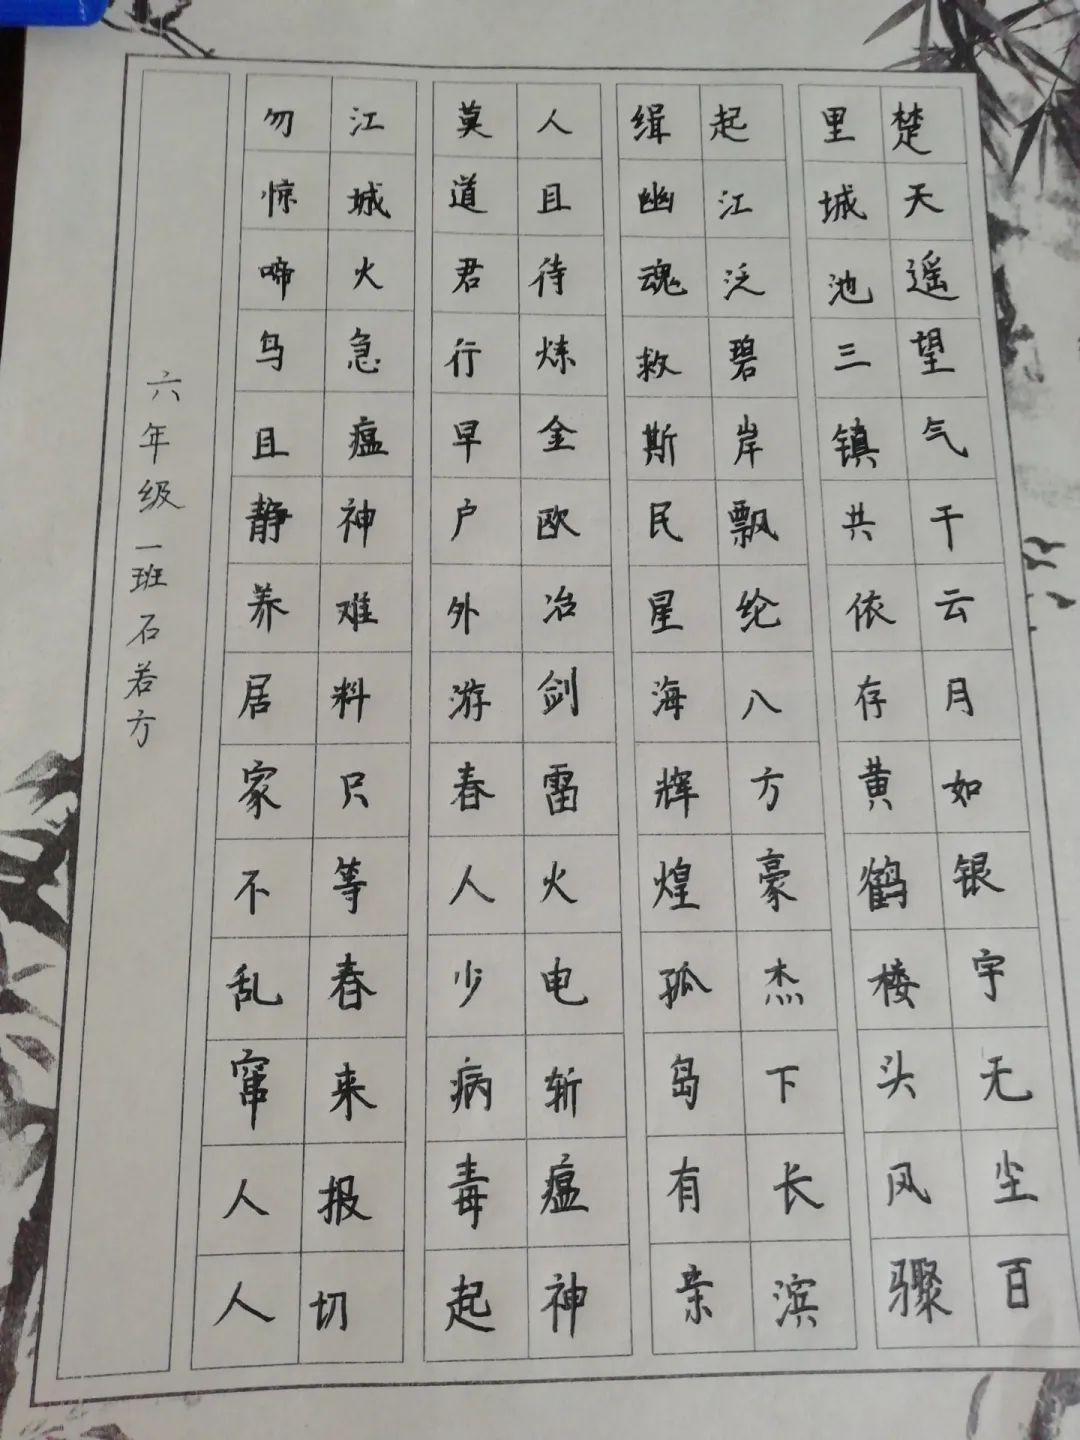 楚天遥望气干云月如银宇无尘百
里城池三镇共依存黄鹤楼头风骤
起江泛碧岸飘纶八方豪杰下长滨
缉幽魂救斯民星海辉煌孤岛有亲
人且待炼金欧冶剑雷火电斩瘟神
莫道君行早户外游春人少病毒起
江城火急瘟神难料只等春来报切
勿惊啼鸟且静养居家不乱窜人人
六年级一班石若方